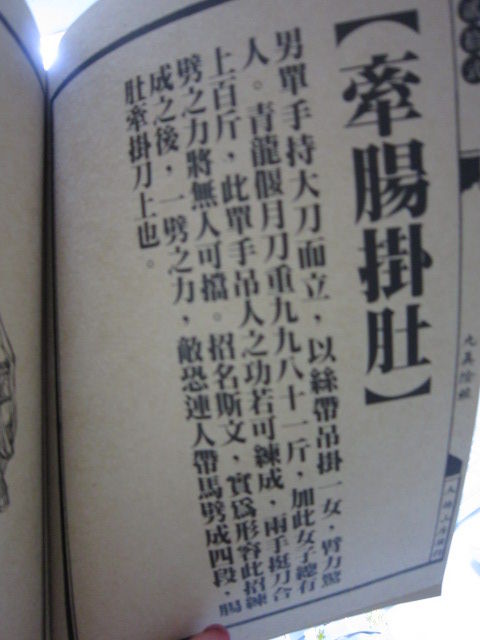 【牽腸掛肚】
男單手持大刀而立，以絲帶吊掛一女，臂力驚
人。青龍偃月刀重九九八十一斤，加此女子總有
上百斤，此單手吊人之功若可練成，兩手挺刀合
劈之力將無人可擋。招名斯文，實為形容此招練
成之後，一劈之力，敵恐連人帶馬劈成四段，腸
肚牽掛刀上也。
九真陰經